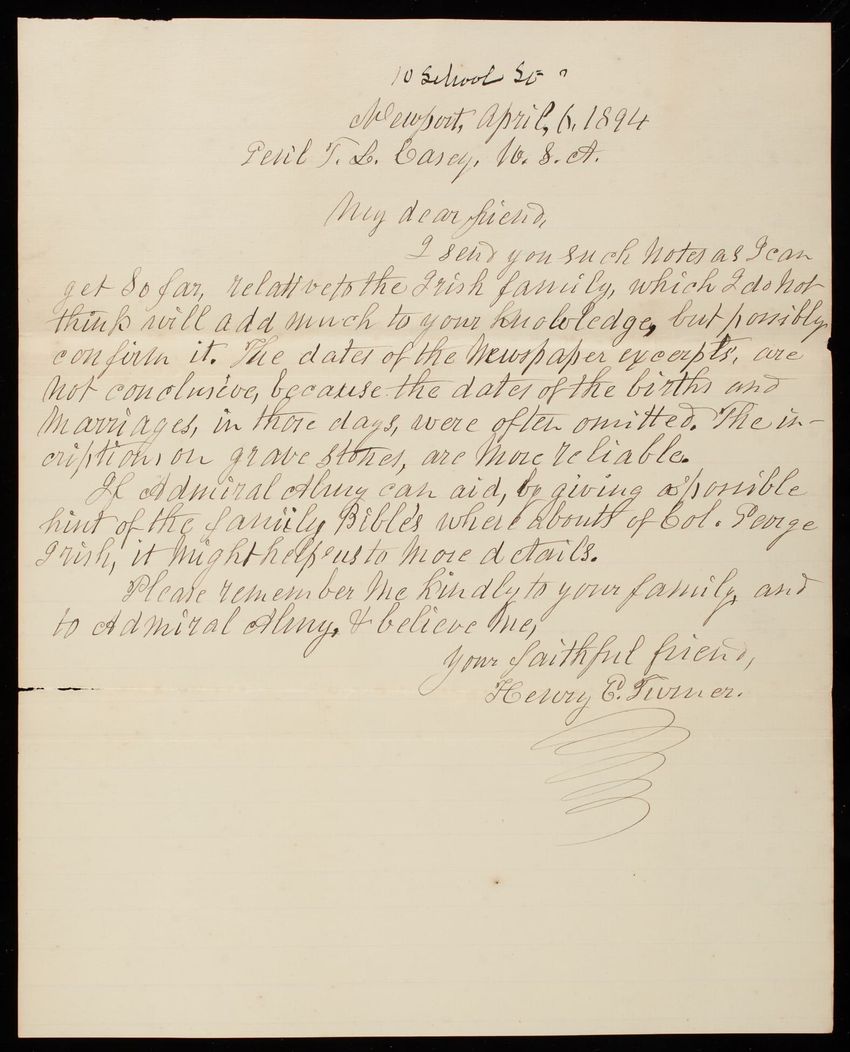 10 School St
Newport, April, 6, 1894
Genl T. L. Casey, U. S. A.
My dear friend,
I send you such notes as I can
get so far, relative to the Irish family, which I do not
think will add much to your knowledge, but possibly
confirm it. The dates of the Newspaper excerpts, are
not conclusive, because the dates of the births and
marriages, in those days, were often omitted. The in-
criptions on grave stones, are more reliable.
If Admiral Almy can aid, by giving a possible
hint of the family Bible's where abouts of Col. George
Irish, it might help us to more details.
Please remember me kindly to your family, and
to Admiral Almy, & believe me,
your faithful friend,
Henry E. Turner.